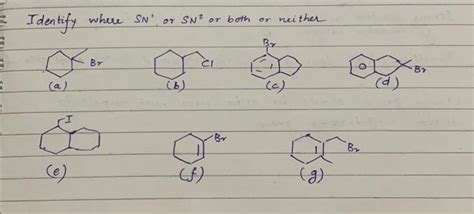 Identify where SN¹ or SN² or both or neither
Br
(a)
Cl
(b)
Br
(c)
Br
(d)
I
(e)
Br
(f)
Br
(g)